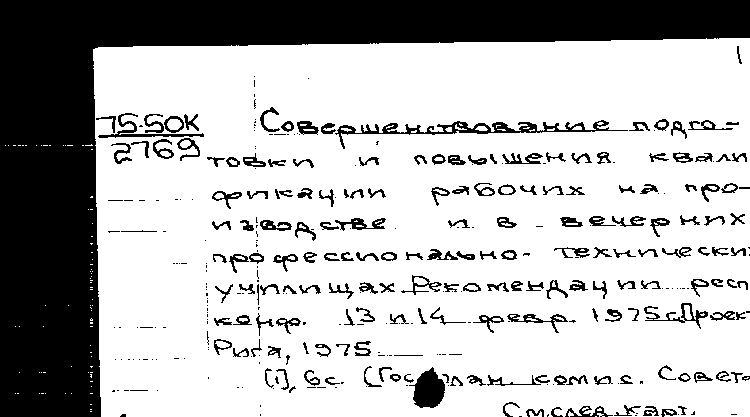 75-50К
2769
Совершенствование подго-
товки и повышения квали
фикации рабочих на про-
изводстве и в вечерних
профессионально-технически
училищах. Рекомендации респ
конф. 13 и 14 февр. 1975г. Проек
Рига, 1975
[1], 6с. (Госплан. комис. Совета
См.след.карт.